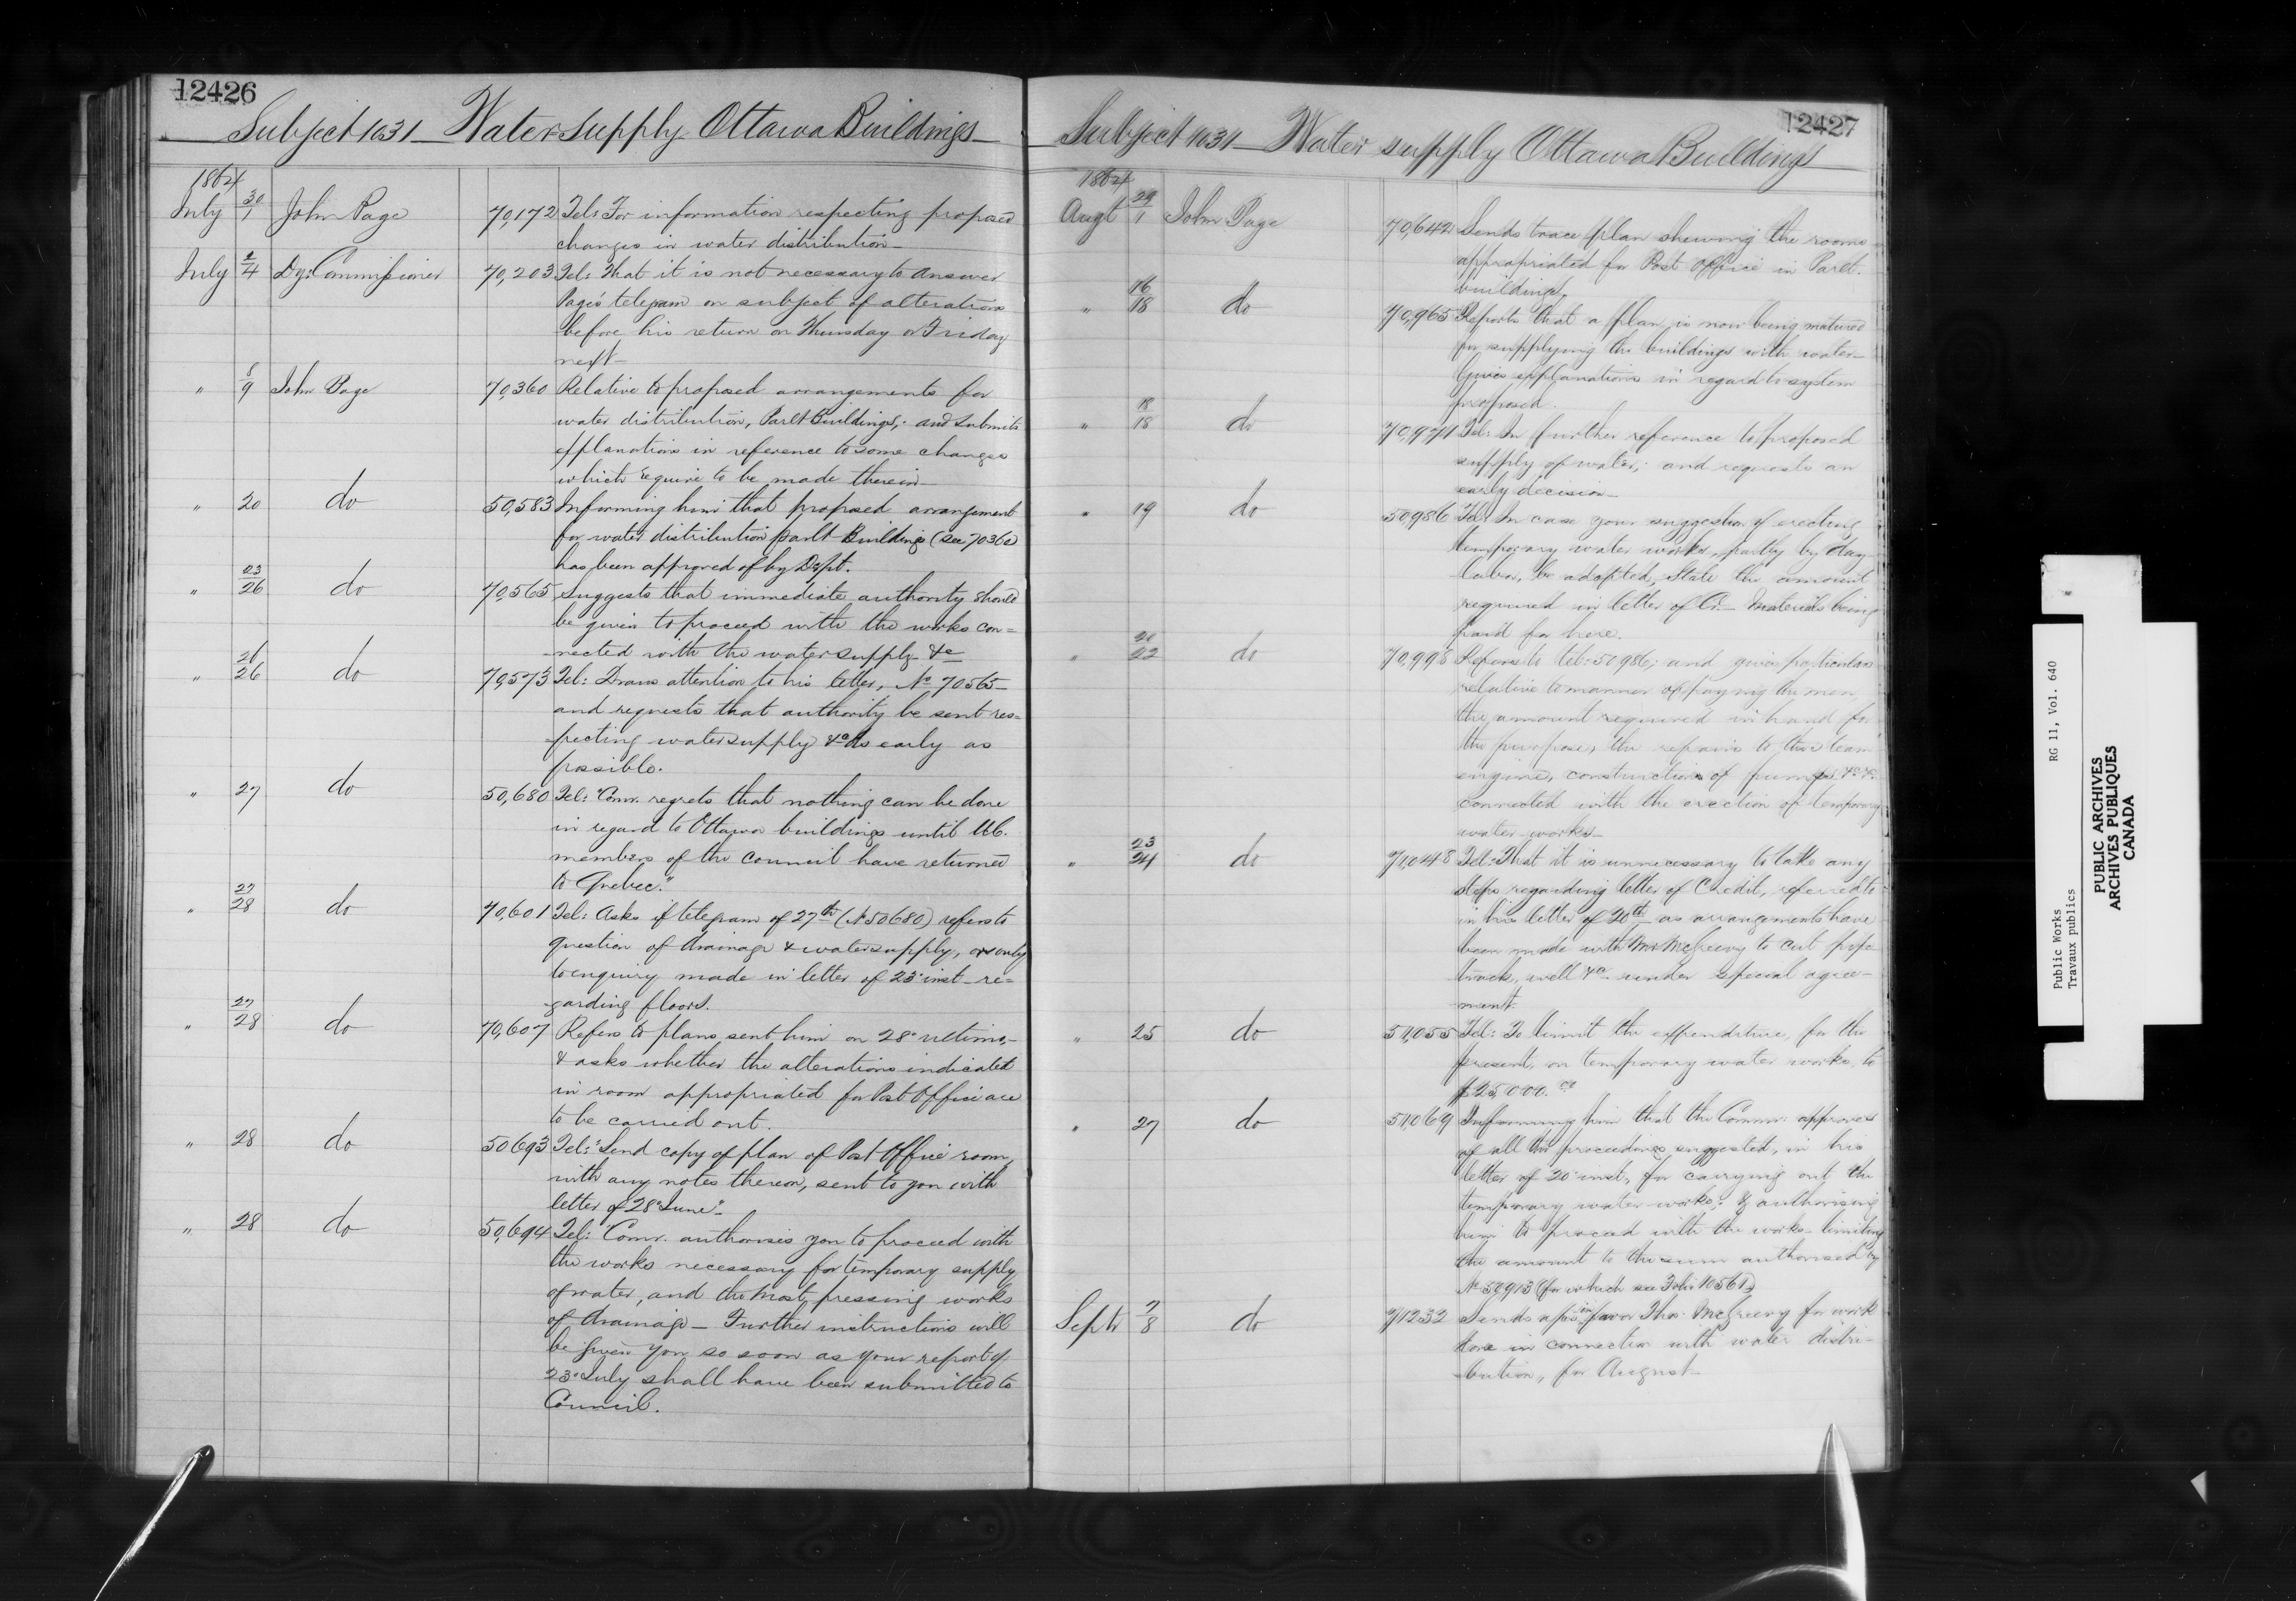 12426
Subject 1031 — Water Supply Ottawa Buildings —
1864
July 30/1 John Page 70,172 Tel: For information respecting proposed
changes in water distribution —
July 2/4 Dy: Commissioner 70,203 Tel: That it is not necessary to answer
Page's telegram on subject of alterations
before his return on Thursday or Friday
next —
" 8/9 John Page 70,360 Relative to proposed arrangements for
water distribution, Parlt Buildings; and submits
explanations in reference to some changes
which require to be made therein —
" 20 do 50,583 Informing him that proposed arrangement
for water distribution parlt Buildings (see 70360)
has been approved of by Dept.
" 23/26 do 70,565 Suggests that immediate authority should
be given to proceed with the works con=
=nected with the water supply &c
" 26/26 do 70,573 Tel: Draws attention to his letter, No 70565 —
and requests that authority be sent res=
=pecting water supply &c as early as
possible.
" 27 do 50,680 Tel: "Comr. regrets that nothing can be done
in regard to Ottawa buildings until U.C.
members of the Council have returned
to Quebec."
" 27/28 do 70,601 Tel: Asks if telegram of 27th (No 50680) refers to
question of drainage & water supply, or only
to enquiry made in letter of 23d inst. re=
=garding floors.
" 27/28 do 70,607 Refers to plans sent him on 28th ultimo, —
& asks whether the alterations indicated
in room appropriated for Post Office are
to be carried out.
" 28 do 50693 Tel: "Send copy of plan of Post Office room,
with any notes thereon, sent to you with
letter of 28th June". —
" 28 do 50,694 Tel: "Comr. authorises you to proceed with
the works necessary for temporary supply
of water, and the most pressing works
of drainage — Further instructions will
be given you so soon as your report of
23d July shall have been submitted to
Council.
12427
Subject 1031 — Water supply Ottawa Buildings
1864
Augt 29/1 John Page 70,642 Sends trace plan shewing the rooms
appropriated for Post Office in Parlt.
buildings.
" 16/18 do 70,965 Reports that a plan is now being matured
for supplying the buildings with water —
Gives explanations in regard to system
proposed.
" 18/18 do 70,971 Tel: In further reference to proposed
supply of water; and requests an
early decision —
" 19 do 50,986 Tel: In case your suggestion of erecting
temporary water works, partly by day
labor, be adopted, state the amount
required in letter of Cr. — Materials being
paid for here.
" 20/22 do 70,998 Refers to tel: 50986; and gives particulars
relative to manner of paying the men,
the amount required in hand for
the purpose, the repairs to the steam
engine, construction of pumps &c &c.
connected with the erection of temporary
water-works —
" 23/24 do 71,048 Tel: That it is unnecessary to take any
steps regarding letter of Credit, referred to
in his letter of 20th as arrangements have
been made with Mr McGreevy to cut pipe
track, well &c. under special agree—
—ment.
" 25 do 51,055 Tel: To limit the expenditure, for the
present, on temporary water works, to
$25,000.00
" 27 do 51,069 Informing him that the Commr. approves
of all the proceedings suggested, in his
letter of 20th inst., for carrying out the
temporary water works; & authorising
him to proceed with the works — limiting
the amount to the sum authorised by
No 50913 (for which see Folio 10561)
Septr 7/8 do 71232 Sends apns in favor Thos. McGreevy for work
done in connection with water distri—
—bution, for August —
Public Works RG 11, Vol. 640
Travaux publics
PUBLIC ARCHIVES
ARCHIVES PUBLIQUES
CANADA